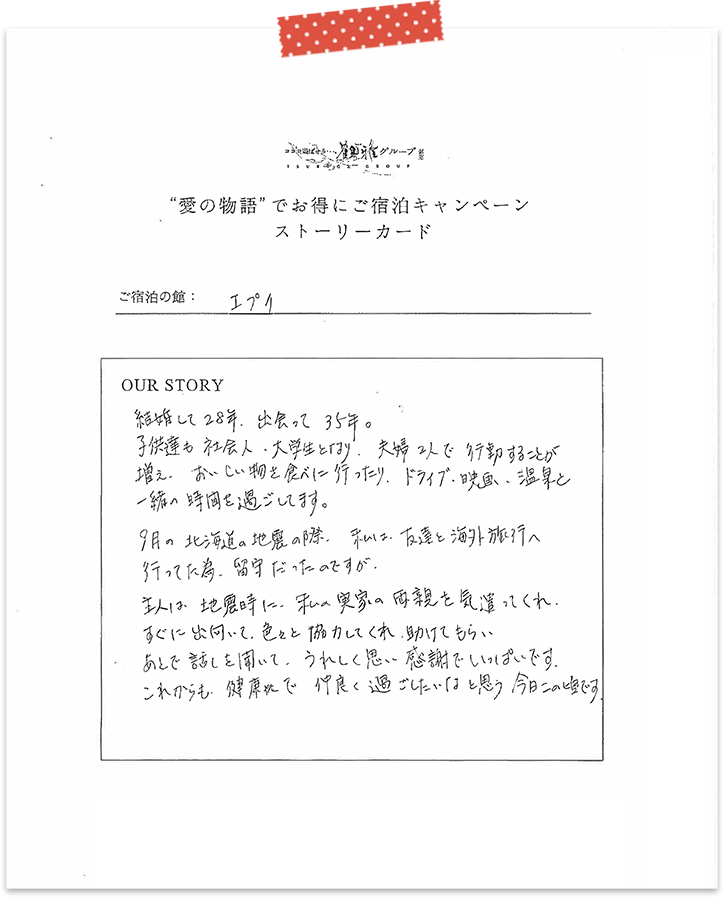 鶴雅グループ
TSURUGA GROUP
“愛の物語”でお得にご宿泊キャンペーン
ストーリーカード
ご宿泊の館： エプイ
OUR STORY
結婚して28年、出会って 35年。
子供達も 社会人、大学生となり、夫婦2人で 行動することが
増え、おいしい物を食べに行ったり、ドライブ、映画、温泉と
一緒の時間を過ごしてます。
9月の 北海道の地震の際、私は、友達と海外旅行へ
行ってた為、留守だったのですが、
主人は 地震時に、私の実家の両親を気遣ってくれ、
すぐに出向いて、色々と協力してくれ、助けてもらい
あとで 話しを聞いて、うれしく思い 感謝でいっぱいです。
これからも、健康で 仲良く過ごしたいなと思う 今日この頃です。